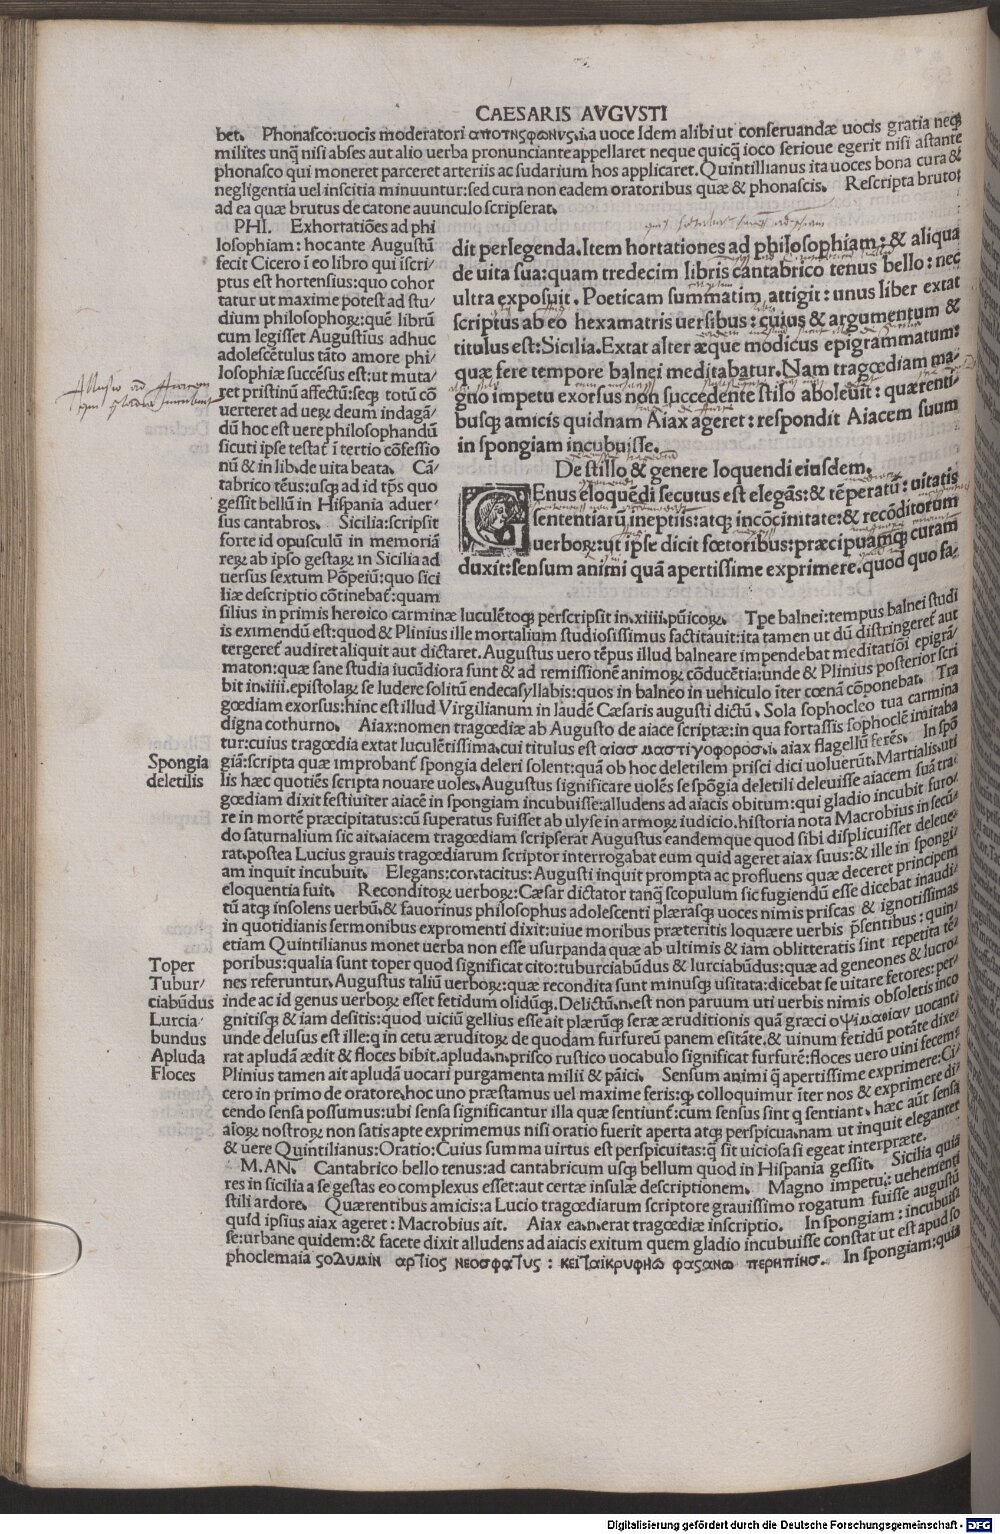 CAESARIS AVGVSTI
bet. Phonasco:uocis moderatori αποτηςφωνυς.i.a uoce Idem alibi ut conseruandæ uocis gratia neqꝫ
milites unq̄ nisi absēs aut alio uerba pronunciante appellaret neque quicq̄ ioco serioue egerit nisi astante
phonasco qui moneret parceret arteriis ac sudarium hos applicaret. Quintillianus ita uoces bona cura &
negligentia uel inscitia minuuntur:sed cura non eadem oratoribus quæ & phonascis. Rescripta bruto:
ad ea quæ brutus de catone auunculo scripserat.
PHI. Exhortatiões ad phi
losophiam: hocante Augustū
fecit Cicero ī eo libro qui iscri/
ptus est hortensius:quo cohor
tatur ut maxime potest ad stu/
dium philosophoꝝ:quē librū
cum legisset Augustius adhuc
adolescētulus tāto amore phi/
losophiæ succēsus est:ut muta/
ret pristinū affectū:seqꝫ totū cō
uerteret ad ueꝝ deum indagā/
dū hoc est uere philosophandū
sicuti ipse testat̄ ī tertio cōfessio
nū & in lib.de uita beata. Cā/
tabrico tēus:usqꝫ ad id tp̄s quo
gessit bellū in Hispania aduer/
sus cantabros. Sicilia:scripsit
forte id opusculū in memoriā
reꝝ ab ipso gestaꝝ in Sicilia ad
uersus sextum Pōpeiū:quo sici
liæ descriptio cōtinebat̄:quam
dit perlegenda. Item hortationes ad philosophiam: & aliqua
de uita sua:quam tredecim libris cantabrico tenus bello: nec
ultra exposuit. Poeticam summatim attigit: unus liber extat
scriptus ab eo hexamatris uersibus: cuius & argumentum &
titulus est:Sicilia.Extat alter æque modicus epigrammatum:
quæ fere tempore balnei meditabatur. Nam tragœdiam ma/
gno impetu exorsus non succedente stilo aboleuit: quærenti/
busqꝫ amicis quidnam Aiax ageret: respondit Aiacem suum
in spongiam incubuisse.
De stillo & genere loquendi eiusdem.
GEnus eloquēdi secutus est elegās:& tēperatū: uitatis
sententiarū ineptiis:atqꝫ incōcinitate:& recōditorum
uerboꝝ:ut ipse dicit fœtoribus:præcipuamqꝫ curam
duxit:sensum animi quā apertissime exprimere.quod quo fa/
silius in primis heroico carminæ luculētoqꝫ perscripsit in.xiiii.pūicoꝝ. Tpe balnei:tempus balnei studi
is eximendū est:quod & Plinius ille mortalium studiosissimus factitauit:ita tamen ut dū distringeret̄ aut
tergeret̄ audiret aliquit aut dictaret. Augustus uero tēpus illud balneare impendebat meditatiōi epigrā/
maton:quæ sane studia iucūdiora sunt & ad remissionē animoꝝ cōducētia:unde & Plinius posterior scri
bit in.iiii.epistolaꝝ se ludere solitū endecasyllabis:quos in balneo in uehiculo īter cœnā cōponebat. Tra
gœdiam exorsus:hinc est illud Virgilianum in laudē Cæsaris augusti dictū. Sola sophocleo tua carmina
digna cothurno. Aiax:nomen tragœdiæ ab Augusto de aiace scriptæ:in qua fortassis sophoclē imitaba
tur:cuius tragœdia extat luculētissima.cui titulus est αιασ μαστιγοφοροσ.i. aiax flagellū ferēs. In spō
Spongia
deletilis
giā:scripta quæ improbant̄ spongia deleri solent:quā ob hoc deletilem prisci dici uoluerūt. Martialis:uti
lis hæc quotiēs scripta nouare uoles. Augustus significare uolēs se spōgia deletili deleuisse aiacem suā tra/
gœdiam dixit festiuiter aiacē in spongiam incubuisse:alludens ad aiacis obitum:qui gladio incubit furo/
re in mortē præcipitatus:cū superatus fuisset ab ulyse in armoꝝ iudicio.historia nota Macrobius in secū/
do saturnalium sic ait.aiacem tragœdiam scripserat Augustus eandemque quod sibi displicuisset deleue/
rat.postea Lucius grauis tragœdiarum scriptor interrogabat eum quid ageret aiax suus:& ille in spongi/
am inquit incubuit. Elegans:cor.tacitus: Augusti inquit prompta ac profluens quæ deceret principem
eloquentia fuit. Reconditoꝝ uerboꝝ:Cæsar dictator tanq̄ scopulum sic fugiendū esse dicebat inaudi/
tū atqꝫ insolens uerbū.& fauorinus philosophus adolescenti plærasqꝫ uoces nimis priscas & ignotissimas
in quotidianis sermonibus expromenti dixit:uiue moribus præteritis loquære uerbis p̄sentibus: quin/
etiam Quintilianus monet uerba non esse usurpanda quæ ab ultimis & iam oblitteratis sint repetita tē/
Toper
Tubur/
ciabūdus
Lurcia/
bundus
Apluda
Floces
poribus:qualia sunt toper quod significat cito:tuburciabūdus & lurciabūdus:quæ ad geneones & lucro/
nes referuntur. Augustus taliū uerboꝝ:quæ recondita sunt minusqꝫ usitata:dicebat se uitare fetores: per/
inde ac id genus uerboꝝ esset fetidum olidūqꝫ. Delictū.n.est non paruum uti uerbis nimis obsoletis inco
gnitisqꝫ & iam desitis: quod uiciū gellius esse ait plærūqꝫ seræ æruditionis quā græci οψιμαθιαν uocant:
unde delusus est ille:q in cetu æruditoꝝ de quodam furfureū panem esitāte.& uinum fetidū potāte dixe/
rat apludā ædit & floces bibit.apluda.n.prisco rustico uocabulo significat furfurē:floces uero uini fecem:
Plinius tamen ait apludā uocari purgamenta milii & pāici. Sensum animi q̄ apertissime exprimere:Ci/
cero in primo de oratore.hoc uno præstamus uel maxime feris:qꝫ colloquimur īter nos & exprimere di/
cendo sensa possumus:ubi sensa significantur illa quæ sentiunt̄:cum sensus sint q sentiant. hæc aūt sensa
aīoꝝ nostroꝝ non satis apte exprimemus nisi oratio fuerit aperta atqꝫ perspicua.nam ut inquit eleganter
& uere Quintilianus:Oratio:Cuius summa uirtus est perspicuitas:q̄ sit uiciosa si egeat interpræte.
M.AN. Cantabrico bello tenus:ad cantabricum usqꝫ bellum quod in Hispania gessit. Sicilia quia
res in sicilia a se gestas eo complexus esset:aut certæ insulæ descriptionem. Magno impetu: uehementi
stili ardore. Quærentibus amicis:a Lucio tragœdiarum scriptore grauissimo rogatum fuisse augustū
quid ipsius aiax ageret: Macrobius ait. Aiax ea.n.erat tragœdiæ inscriptio. In spongiam: incubuis
se:urbane quidem:& facete dixit alludens ad aiacis exitum quem gladio incubuisse constat ut est apud so
phoclem:αια ςολυμιν αρτιος νεοσφατυς : κειταικρυφηω φασανω περηπινσ. In spongiam:quia
Digitalisierung gefördert durch die Deutsche Forschungsgemeinschaft - DFG